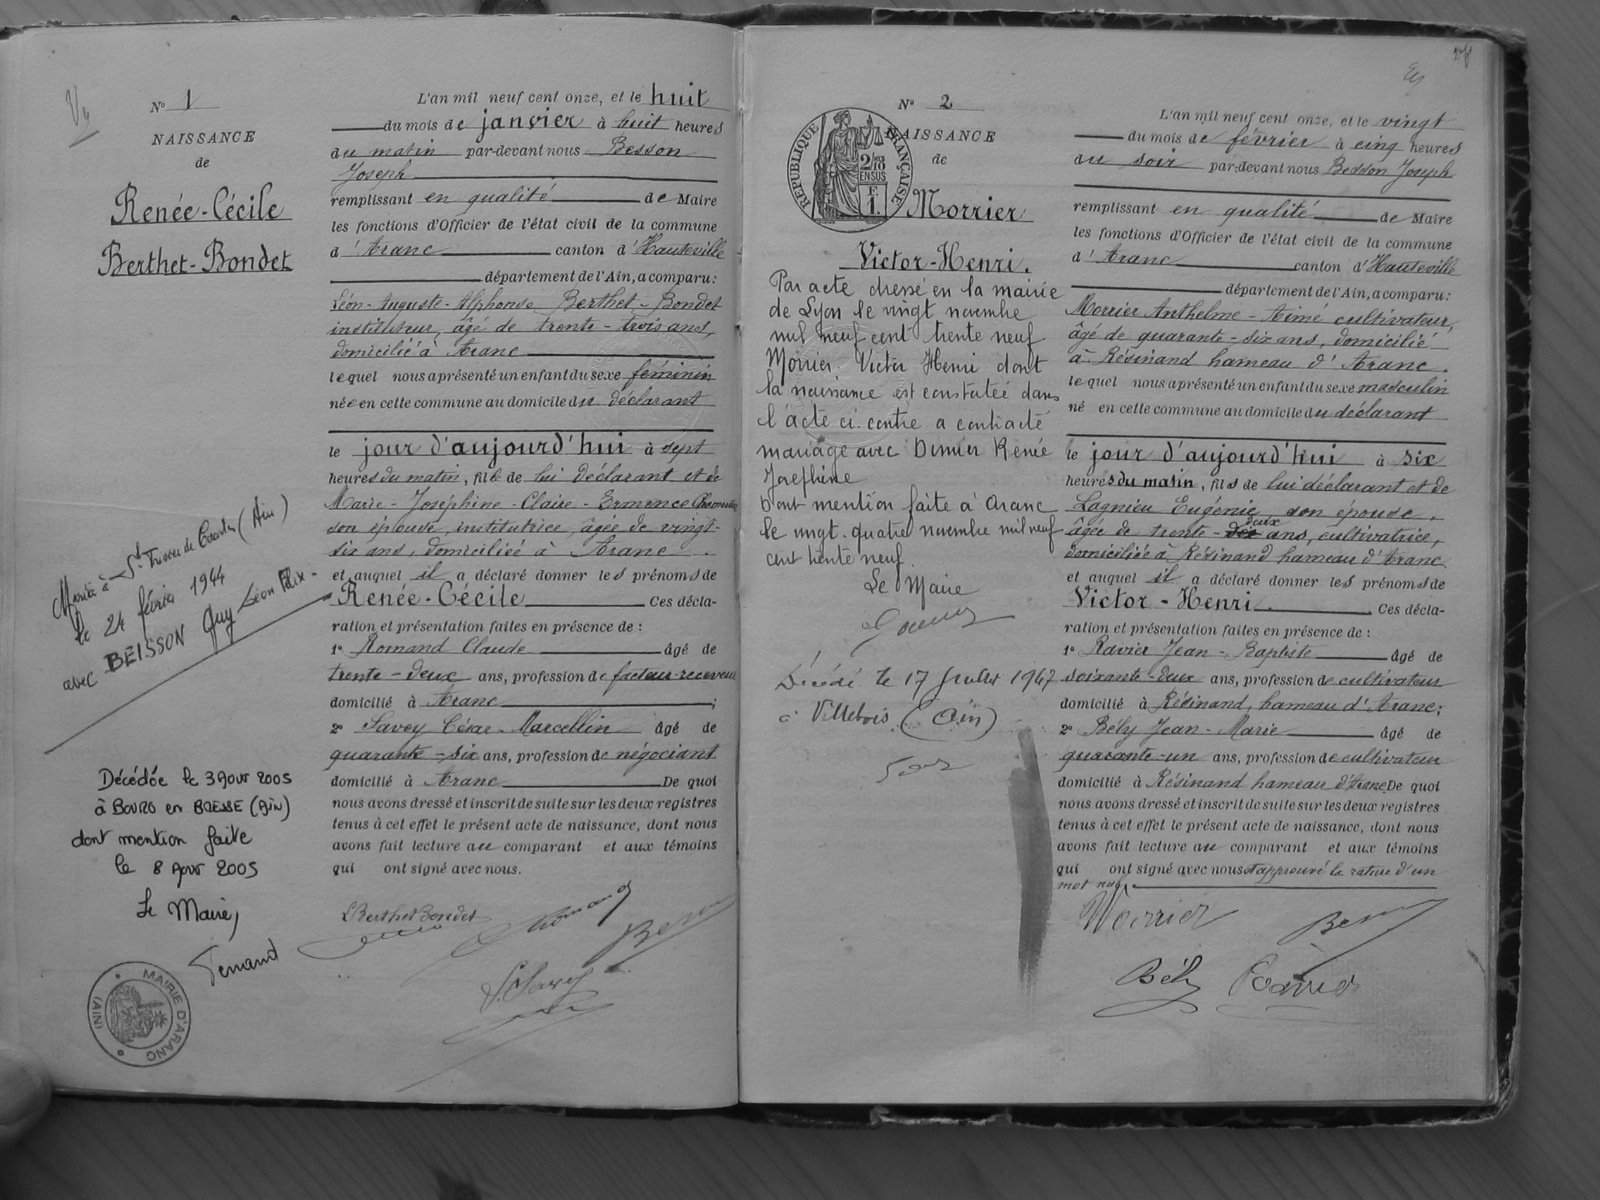 N° 1
NAISSANCE
de
Renée-Cécile
Berthet-Bondet
Marié à St Trivier de Courtes (Ain)
le 24 février 1944
avec BEISSON Guy Léon Félix
Décédée le 3 Août 2005
à BOURG en BRESSE (Ain)
dont mention faite
le 8 Août 2005
Le Maire,
MAIRIE D'ARANC (AIN)
L'an mil neuf cent onze, et le huit
du mois de janvier à huit heures
du matin par-devant nous Besson
Joseph
remplissant en qualité de Maire
les fonctions d'Officier de l'état civil de la commune
d'Aranc canton d'Hauteville
département de l'Ain, a comparu :
Léon-Auguste-Alphonse Berthet-Bondet
instituteur, âgé de trente-trois ans,
domicilié à Aranc
lequel nous a présenté un enfant du sexe féminin
née en cette commune au domicile du déclarant
le jour d'aujourd'hui à sept
heures du matin, fille de lui déclarant et de
Marie-Joséphine-Claire-Ermance
son épouse, institutrice, âgée de vingt-
six ans, domiciliée à Aranc.
et auquel il a déclaré donner les prénoms de
Renée-Cécile Ces décla-
ration et présentation faites en présence de :
1° Romand Claude âgé de
trente-deux ans, profession de facteur-receveur
domicilié à Aranc ;
2° Savey César-Marcellin âgé de
quarante-six ans, profession de négociant
domicilié à Aranc De quoi
nous avons dressé et inscrit de suite sur les deux registres
tenus à cet effet le présent acte de naissance, dont nous
avons fait lecture au comparant et aux témoins
qui ont signé avec nous.
LBerthetBondet
Romand
Besson
Savey
N° 2
NAISSANCE
de
RÉPUBLIQUE FRANÇAISE
2/10 EN SUS
F. 1.
Morrier
Victor-Henri.
Par acte dressé en la mairie
de Lyon le vingt novembre
mil neuf cent trente neuf
Morrier Victor Henri dont
la naissance est constatée dans
l'acte ci. contre a contracté
mariage avec Dimier Renée
Joséphine
Dont mention faite à Aranc
le vingt. quatre novembre mil neuf
cent trente neuf.
Le Maire
Décédé le 17 Juillet 1967
à Villebois (Ain)
L'an mil neuf cent onze, et le vingt
du mois de février à cinq heures
du soir par-devant nous Besson Joseph
remplissant en qualité de Maire
les fonctions d'Officier de l'état civil de la commune
d'Aranc canton d'Hauteville
département de l'Ain, a comparu :
Morrier Anthelme-Aimé cultivateur,
âgé de quarante-six ans, domicilié
à Résinand hameau d'Aranc.
lequel nous a présenté un enfant du sexe masculin
né en cette commune au domicile du déclarant
le jour d'aujourd'hui à six
heures du matin, fils de lui déclarant et de
Lagnieu Eugénie, son épouse,
âgée de trente-deux ans, cultivatrice,
domiciliée à Résinand hameau d'Aranc.
et auquel il a déclaré donner les prénoms de
Victor-Henri. Ces décla-
ration et présentation faites en présence de :
1° Ravier Jean-Baptiste âgé de
soixante-deux ans, profession de cultivateur
domicilié à Résinand, hameau d'Aranc ;
2° Bély Jean-Marie âgé de
quarante-un ans, profession de cultivateur
domicilié à Résinand hameau d'Aranc De quoi
nous avons dressé et inscrit de suite sur les deux registres
tenus à cet effet le présent acte de naissance, dont nous
avons fait lecture au comparant et aux témoins
qui ont signé avec nous et approuvé la rature d'un
mot nul.
Morrier
Besson
Bély
Ravier